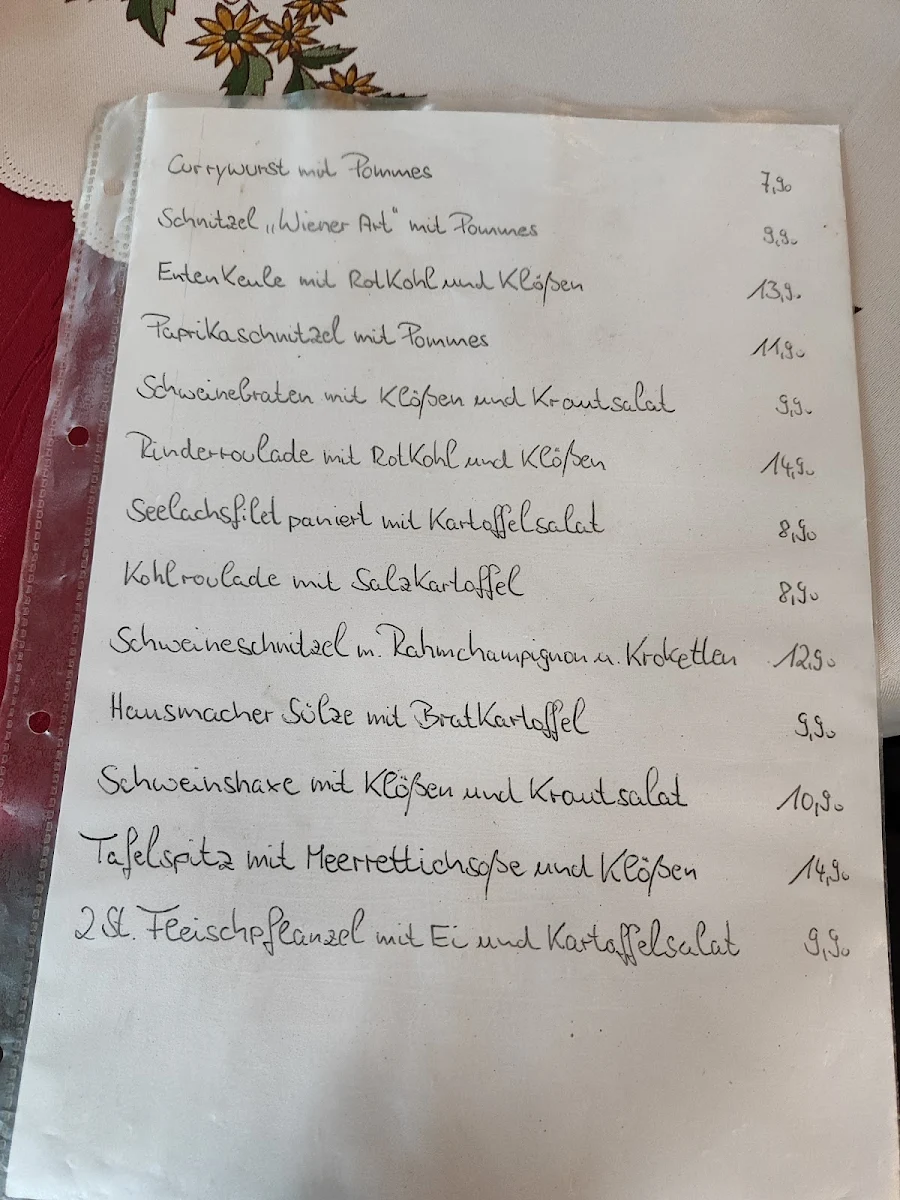 Currywurst mit Pommes 7,90
Schnitzel „Wiener Art" mit Pommes 9,90
Entenkeule mit Rotkohl und Klößen 13,90
Paprikaschnitzel mit Pommes 11,90
Schweinebraten mit Klößen und Krautsalat 9,90
Rinderroulade mit Rotkohl und Klößen 14,90
Seelachsfilet paniert mit Kartoffelsalat 8,90
Kohlroulade mit Salzkartoffel 8,90
Schweineschnitzel m. Rahmchampignon u. Kroketten 12,90
Hausmacher Sülze mit Bratkartoffel 9,90
Schweinshaxe mit Klößen und Krautsalat 10,90
Tafelspitz mit Meerrettichsoße und Klößen 14,90
2 St. Fleischpflanzel mit Ei und Kartoffelsalat 9,90